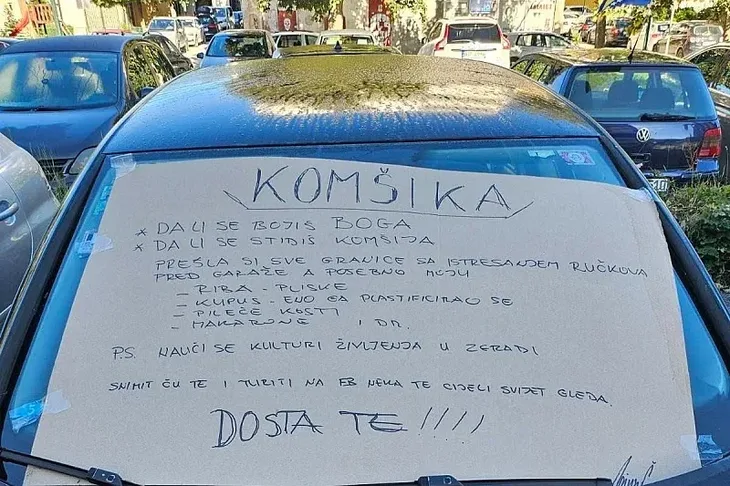 KOMŠIKA
* DA LI SE BOJIŠ BOGA
* DA LI SE STIDIŠ KOMŠIJA
PREŠLA SI SVE GRANICE SA ISTRESANJEM RUČKOVA
PRED GARAŽE A POSEBNO MOJU
- RIBA - PLISKE
- KUPUS - ENO GA PLASTIFICIRAO SE
- PILEĆE KOSTI
- MAKARONE I DR.
P.S. NAUČI SE KULTURI ŽIVLJENJA U ZGRADI
SNIMIT ĆU TE I TURITI NA FB NEKA TE CIJELI SVIJET GLEDA.
DOSTA TE !!!!